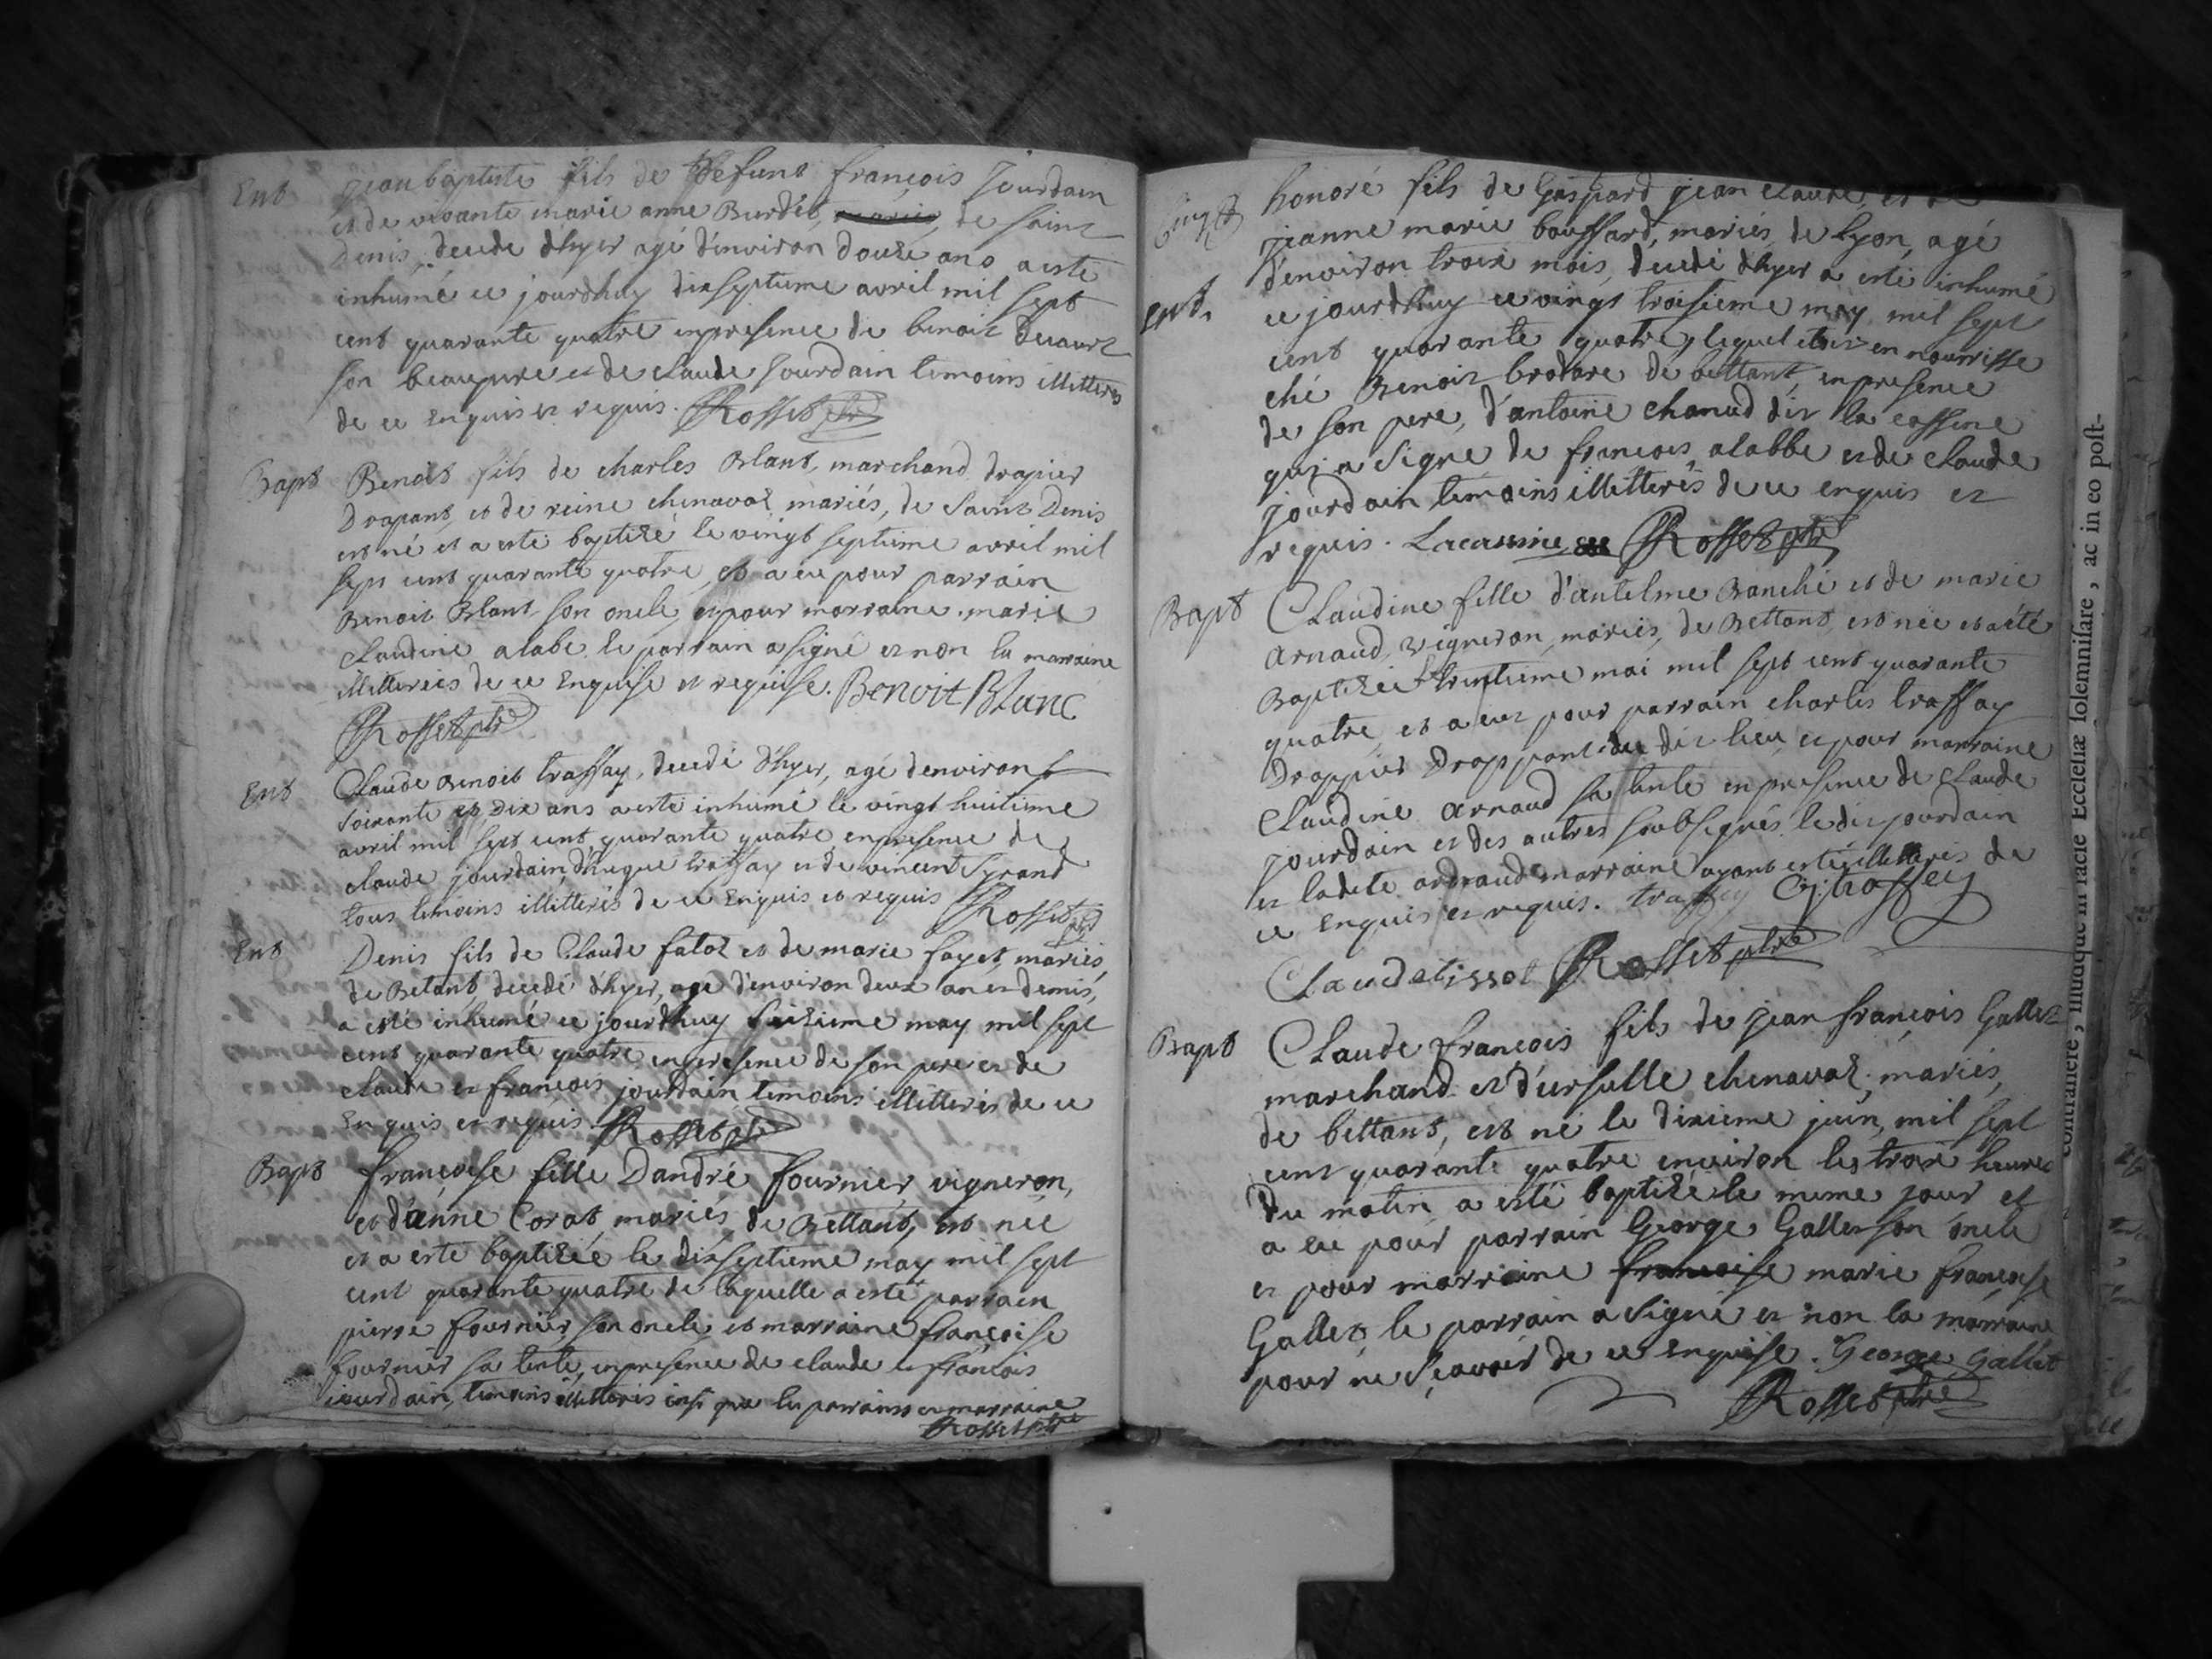 Ent
jean baptiste fils de defunt françois Jourdain
et de vivante marie anne Burdet, de saint
Denis, decede d'hyer agé d'environ douze ans a esté
inhumé ce jourdhuy dixseptieme avril mil sept
cent quarante quatre en presence de benoit
son beaupere et de claude Jourdain temoins illitteres
de ce enquis et requis. Rosset ptre
Bapt
Benoit fils de charles Blanc, marchand drapier
Drapant, et de reine chenaval mariés, de Saint Denis
est né et a esté baptizé le vingt septieme avril mil
sept cent quarante quatre, et a eu pour parrain
Benoit Blanc son oncle, et pour marraine marie
claudine alabe le parrain a signé et non la marraine
illitterées de ce Enquise et requise. Benoit Blanc
Rosset ptre
Ent
Claude Benoit traffay, decedé d'hyer, agé denviron
soixante et Dix ans a esté inhumé le vingt huitieme
avril mil sept cent quarante quatre en presence de
claude jourdain, d'hugue traffay et de vincent Syrand
tous temoins illitterés de ce Enquis et requis Rosset ptre
Ent
Denis fils de Claude fatoz et de marie fayet, mariés,
de Betant, decedé d'hyer, agé d'environ deux an et demis,
a esté inhumé ce jourdhuy may mil sept
cent quarante quatre, en presence de son pere et de
claude et françois jourdain temoins illitterés de ce
Enquis et requis. Rosset ptre
Bapt
françoise fille Dandré fournier vigneron,
et d'anne Corat mariés de Bettant, est née
et a esté baptizée le dixseptieme may mil sept
cent quarante quatre de laquelle a esté parrain
pierre fournier, son oncle, et marraine françoise
fournier sa tente, en presence de claude et françois
jourdain, temoins illitteres insi que les parrains et marraine
Rosset ptre
honoré fils de Gaspard jean claude, et de
Ent.
jeanne marie bouffard, mariés, de Lyon, agé
d'environ trois mois, decedé d'hyer a esté inhumé
ce jourdhuy ce vingt troisieme may mil sept
cent quarante quatre, lequel etoit en nourrisse
ché Benoit brodare de bettant, en presence
de son pere, d'antoine chanud dit la cassine
qui a signe de francois alabbe et de claude
jourdain temoins illitterés de ce enquis et
requis. Lacassine Rosset ptre
Bapt
Claudine fille d'antelme Banché et de marie
arnaud, vigneron, mariés, de Bettant, est née et a été
Baptizée trentieme mai mil sept cent quarante
quatre, et a eut pour parrain charles traffay
Drappier Drappant du dit lieu, et pour marraine
Claudine arnaud sa tente en presence de claude
jourdain et des autres soubsignés le dit jourdain
et ladite arnaude marraine ayant esté illitterés de
ce enquis et requis. traffey traffey
Claude tissot Rosset ptre
Bapt
Claude françois fils de jean françois Gallet
marchand et d'ursulle chenaval mariés,
de bettant, est né le dixieme juin, mil sept
cent quarante quatre environ les trois heures
du matin a esté baptizé le meme jour et
a eu pour parrain George Gallet son oncle
et pour marraine francoise marie françoise
Gallet, le parrain a signé et non la marraine
pour ne sçavoir de ce enquise. George Gallet
Rosset ptre
contrahere, illudque in facie Ecclesiæ solemnisare, ac in eo post-